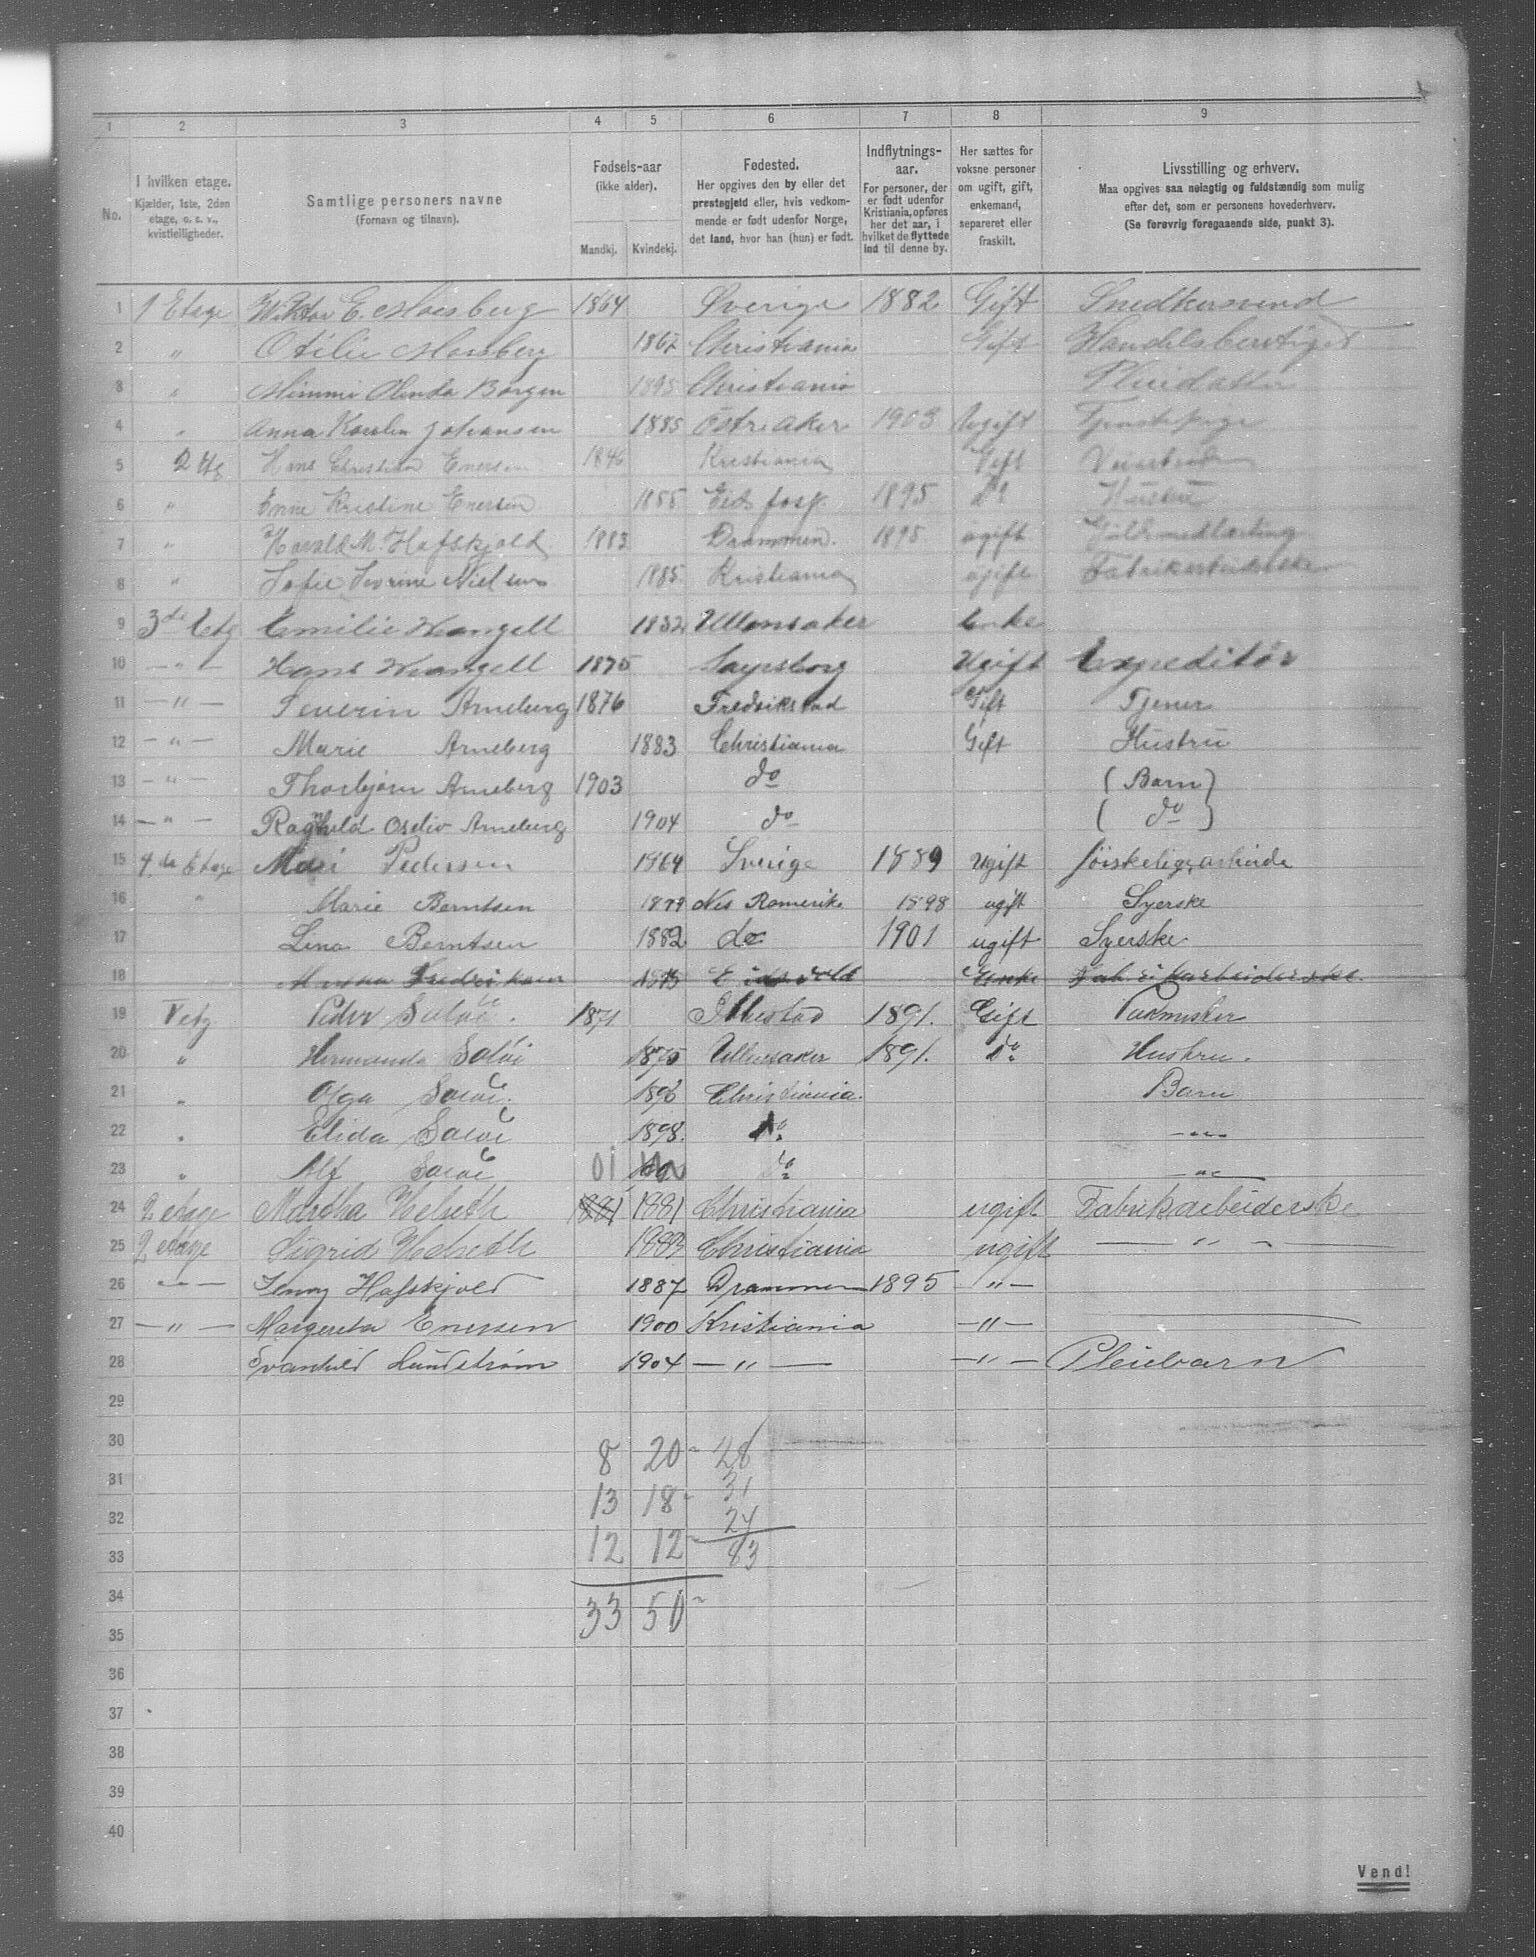 1 2 3 4 5 6 7 8 9
No.
I hvilken etage. Kjælder, 1ste, 2den etage, o. s. v., kvistleiligheder.
Samtlige personers navne (Fornavn og tilnavn).
Fødsels-aar (ikke alder). Mandkj. Kvindekj.
Fødested. Her opgives den by eller det prestegjeld eller, hvis vedkommende er født udenfor Norge, det land, hvor han (hun) er født.
Indflytnings-aar. For personer, der er født udenfor Kristiania, opføres her det aar, i hvilket de flyttede ind til denne by.
Her sættes for voksne personer om ugift, gift, enkemand, separeret eller fraskilt.
Livsstilling og erhverv. Maa opgives saa nøiagtig og fuldstændig som mulig efter det, som er personens hovederhverv. (Se forøvrig foregaaende side, punkt 3).
1 1 Etage Viktor E. Moesberg 1864 Sverige 1882 Gift Snedkersvend
2 " Otilie Moesberg 1867 Christiania Gift Handelsberetiget
3 " Mimmi Olinda Borgen 1895 Christiania Pleidatter
4 " Anna Karolin Johansen 1885 Østre Aker 1903 Ugift Tjenestepige
5 2 Etg Hans Christian Enersen 1846 Kristiania Gift
6 " Enne Kristine Enersen 1855 Eids fosf 1895 do Hustru
7 " Harald M. Hafskjold 1883 Drammen. 1895 ugift Guldsmedlærling
8 " Sofie Severine Nielsen 1885 Kristiania ugift Fabrikarbeiderske
9 3de Etg Emilie Wangell 1832 Ullensaker Enke
10 — " — Hans Wrangell 1875 Sarpsborg Ugift Expeditør
11 — " — Severin Arneberg 1876 Fredrikstad Gift Tjener
12 — " — Marie Arneberg 1883 Christiania Gift Hustru
13 — " — Thorbjørn Arneberg 1903 do (Barn)
14 — " — Raghild Oddiv Arneberg 1904 do (do)
15 4de Etage Mari Pedersen 1864 Sverige 1889 ugift forskelige arbeide
16 " Marie Berntsen 1879 Nes Romerike 1898 ugift Syerske
17 Lina Berntsen 1882 do 1901 ugift Syerske
18 Fredriksen 1875 Eidsvold Enke Fabrikarbeiderske
19 V etg Peder Sætre. 1871 1891. Gift
20 " Hermanda Sætre 1875 Ullensaker 1891. do Hustru.
21 " Olga 1896 Christiania. Barn
22 " Elida 1898. do —"—
23 " Alf 01 do —"—
24 2 etage Martha Helseth 1881 1881 Christiania ugift Fabrikarbeiderske
25 2 etage Sigrid Helseth 1883 Christiania ugift — " —
26 — " — Jenny Hafskjold 1887 Drammen 1895 — " —
27 — " — Margereta Enersen 1900 Kristiania — " —
28 Svanhild Lundstrøm 1904 — " — — " — Pleiebarn
29
30 8 20 - 28
31 13 18 - 31
32 24
33 12 12 - 83
34 33 50 -
35
36
37
38
39
40
Vend!